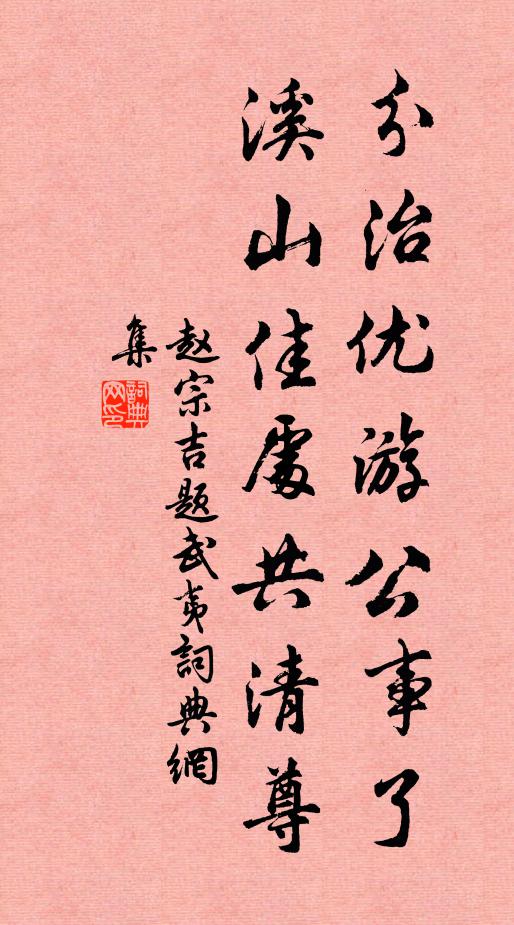 分治优游公事了
溪山佳處共清尊
赵宗吉题武夷詞典網
集
詞典網印